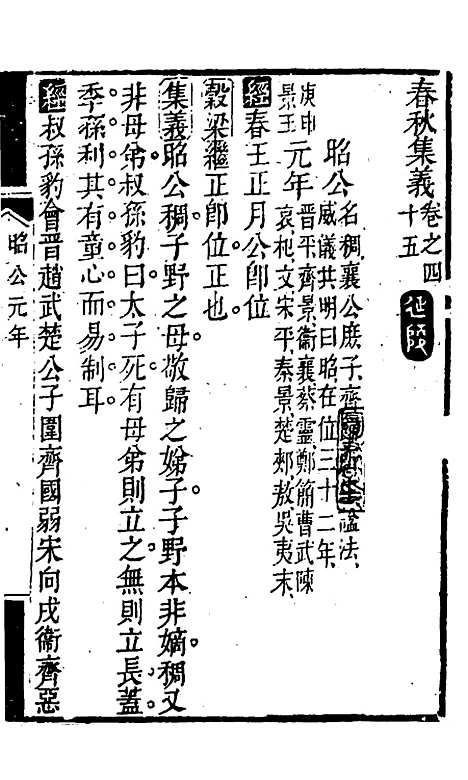 春秋集義卷之四十五
昭公名稠襄公庶子齊歸所生謚法
威儀共明曰昭在位三十二年
庚申景王元年晉平齊景衞襄蔡靈鄭簡曹武陳
哀杞文宋平秦景楚郟敖吳夷末
經春王正月公卽位
穀梁繼正卽位正也
集義昭公稠子野之母敬歸之娣子子野本非嫡稠又
非母弟叔孫豹曰太子死有母弟則立之無則立長蓋
季孫利其有童心而易制耳
經叔孫豹會晉趙武楚公子圍齊國弱宋向戌衞齊惡
昭公元年